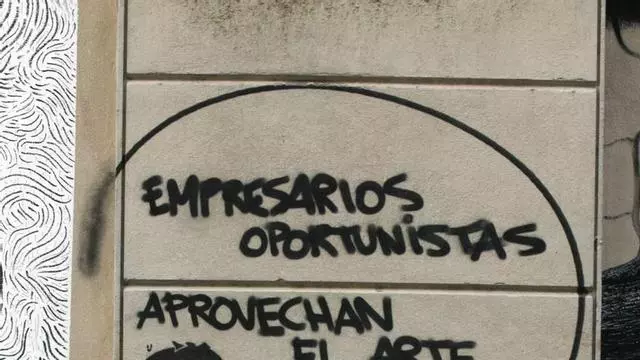 EMPRESARIOS
OPORTUNISTAS
APROVECHAN
EL ARTE